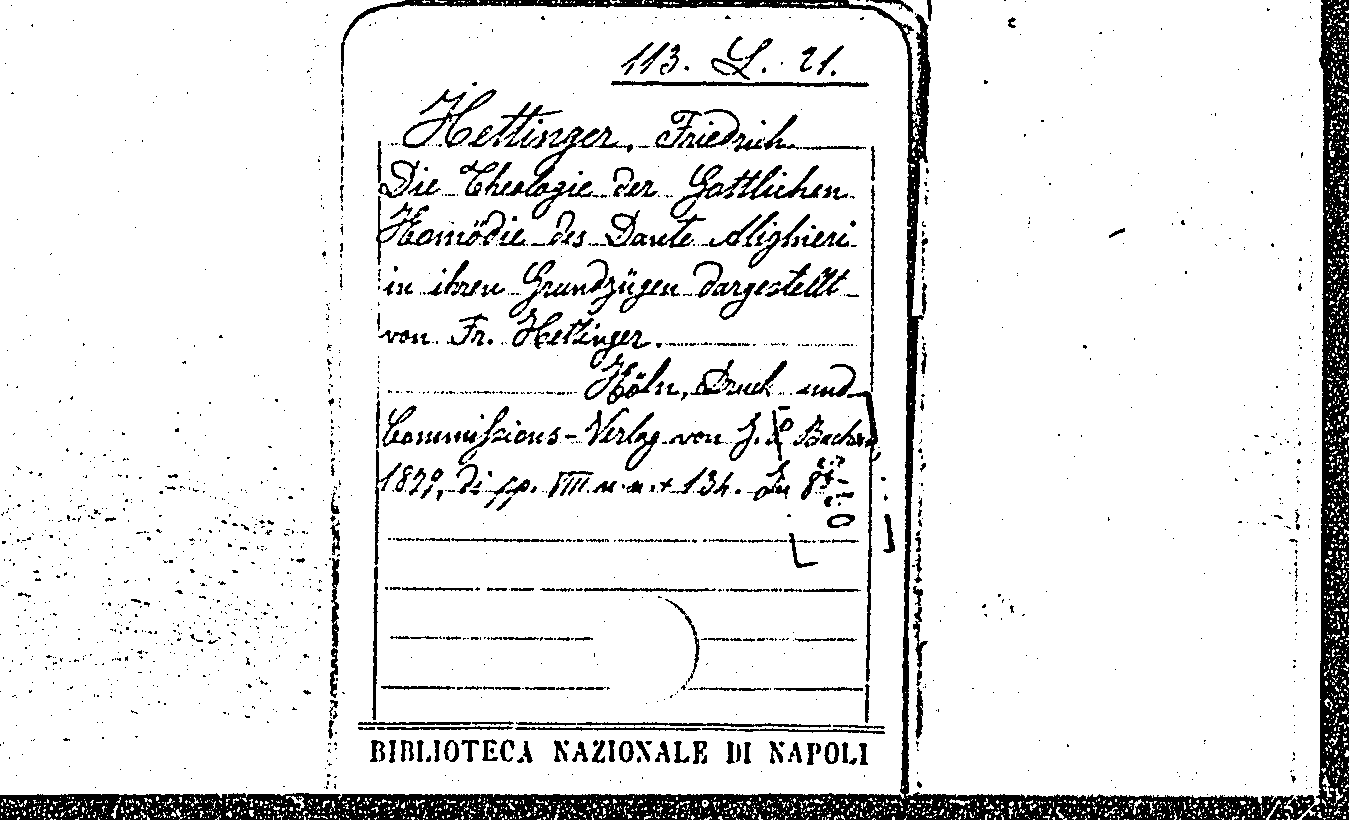 113. L. 21.
Hettinger, Friedrich.
Die Theologie der Gottlichen
Komödie des Dante Alighieri
in ihren Grundzügen dargestellt
von Fr. Hettinger.
Köln, Druck und
Commissions-Verlag von J. P. Bachem,
1879, di pp. VIII n.n. + 134. In 8º
BIBLIOTECA NAZIONALE DI NAPOLI